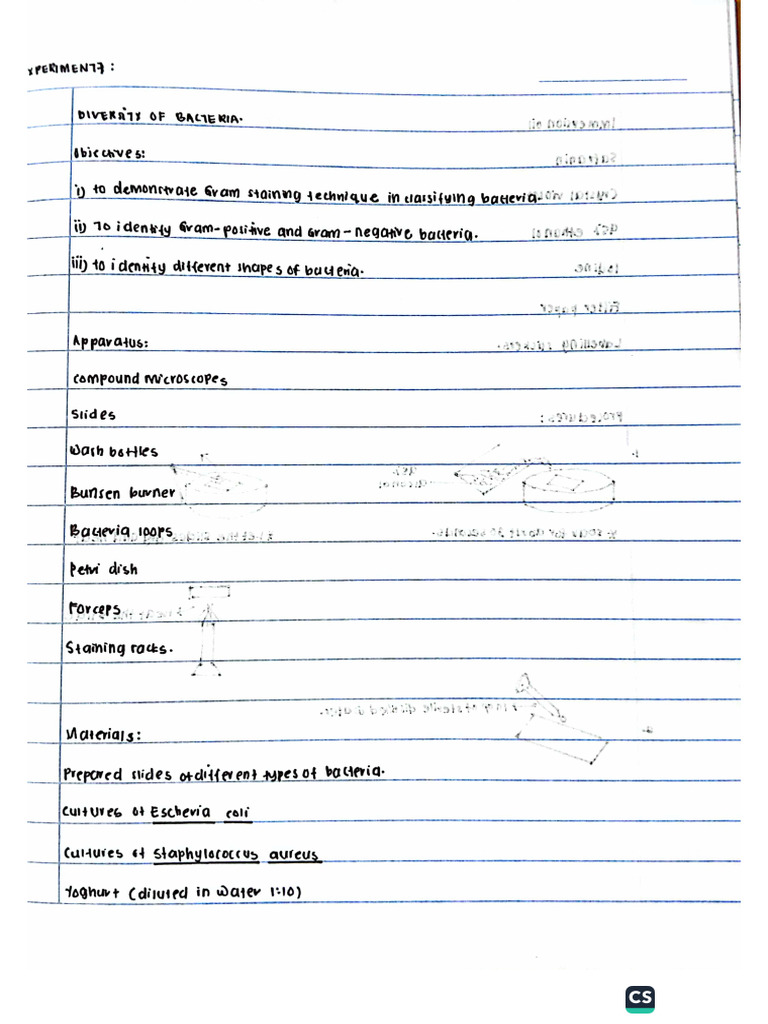 XPERIMENT 7:
DIVERSITY OF BACTERIA.
Objectives:
i) to demonstrate Gram staining technique in classifying bacteria.
ii) To identify Gram-positive and Gram-negative bacteria.
iii) to identify different shapes of bacteria.
Apparatus:
compound microscopes
Slides
Wash bottles
Bunsen burner
Bacteria loops
Petri dish
Forceps
Staining racks.
Materials:
Prepared slides of different types of bacteria.
Cultures of Escheria coli
Cultures of Staphylococcus aureus
Yoghurt (diluted in water 1:10)
CS